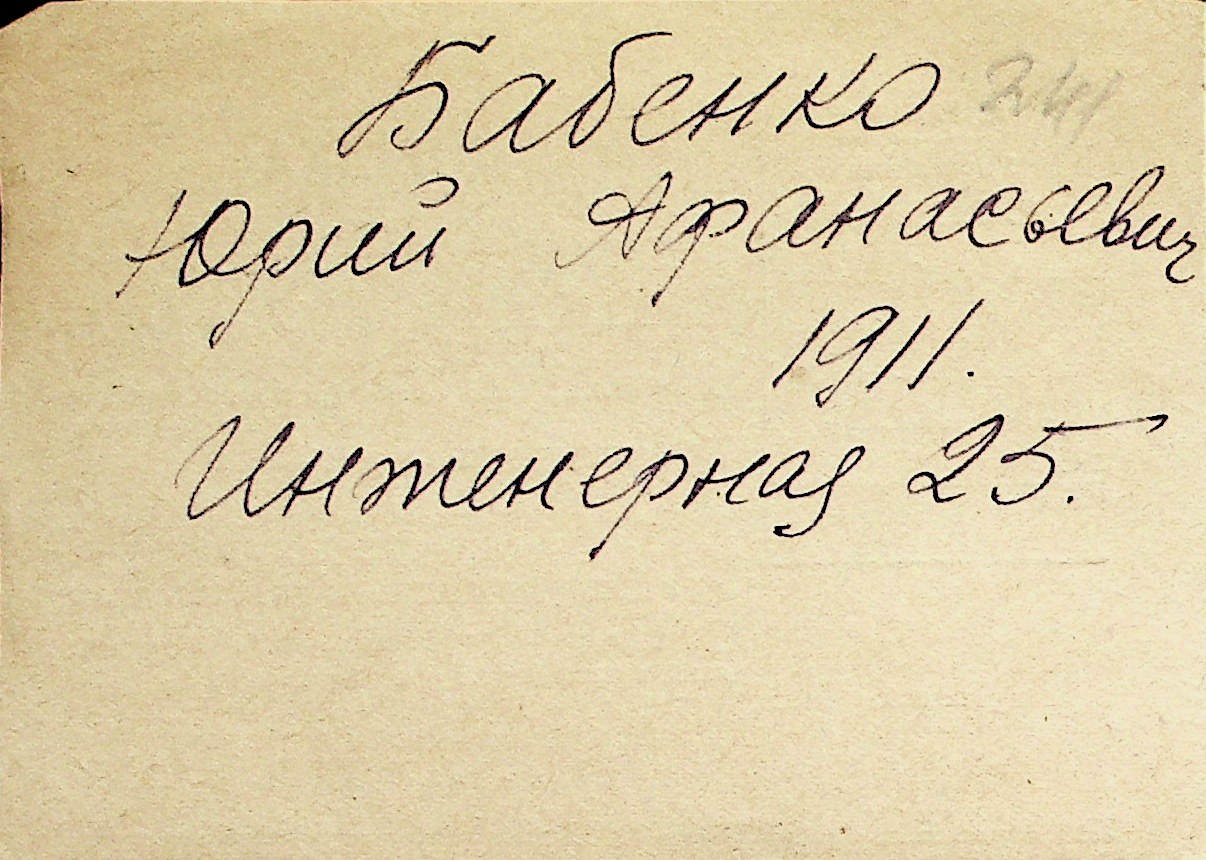 Бабенко 241
Юрий Афанасьевич
1911.
Инженерная 25.